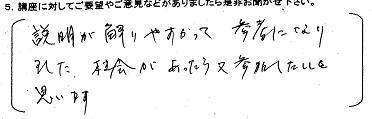 5. 講座に対してご要望やご意見などがありましたら是非お聞かせ下さい。
説明が解りやすかって 参考になり
ました 機会があったら又参加したいと
思います